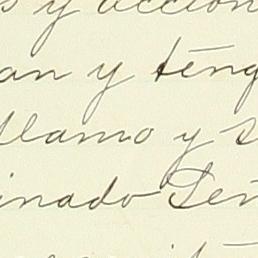 s y accion
an y téng
llamo y s
inado Señ